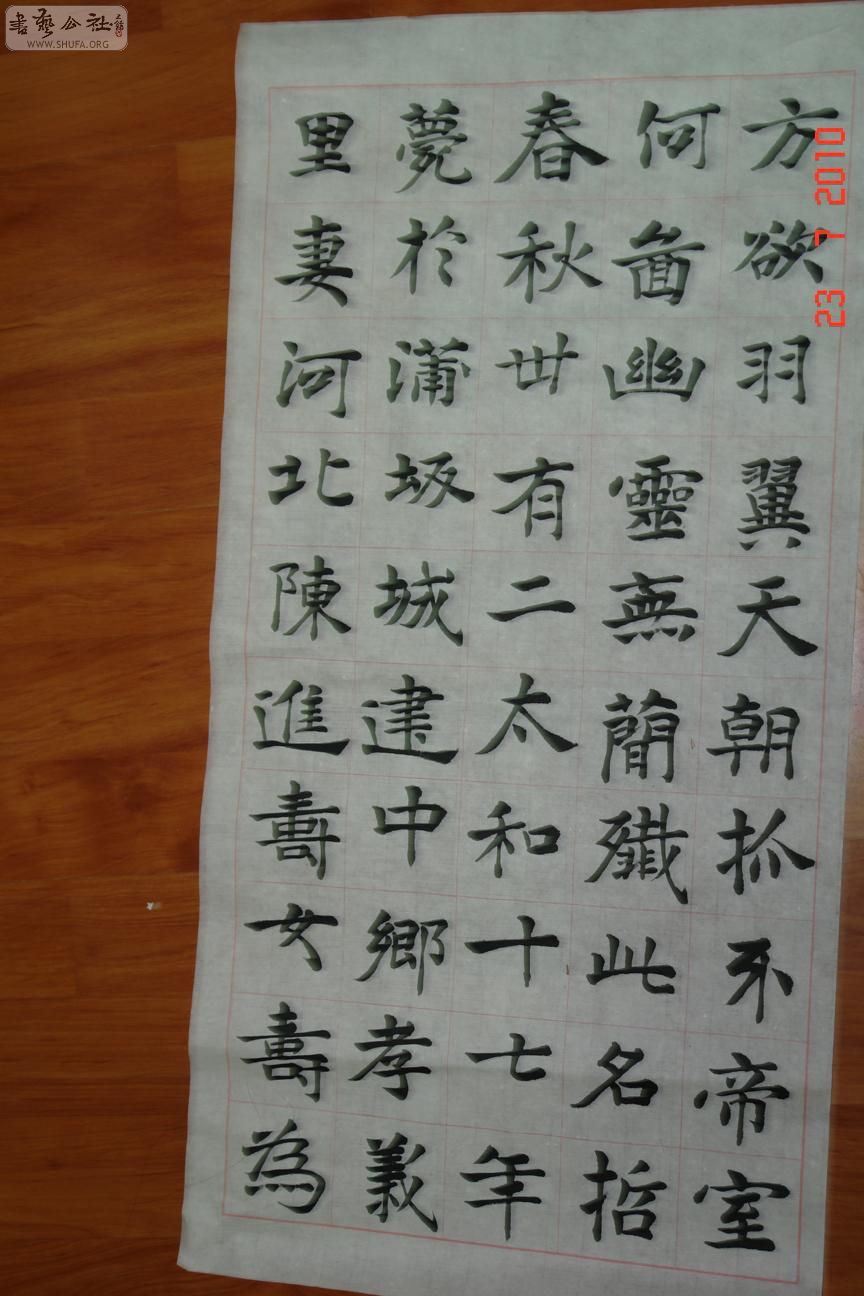 書藝公社
WWW.SHUFA.ORG
23 7 2010
方欲羽翼天朝抓牙帝室
何啚幽靈無簡殲此名哲
春秋卅有二太和十七年
薨於蒲坂城建中鄉孝義
里妻河北陳進壽女壽為